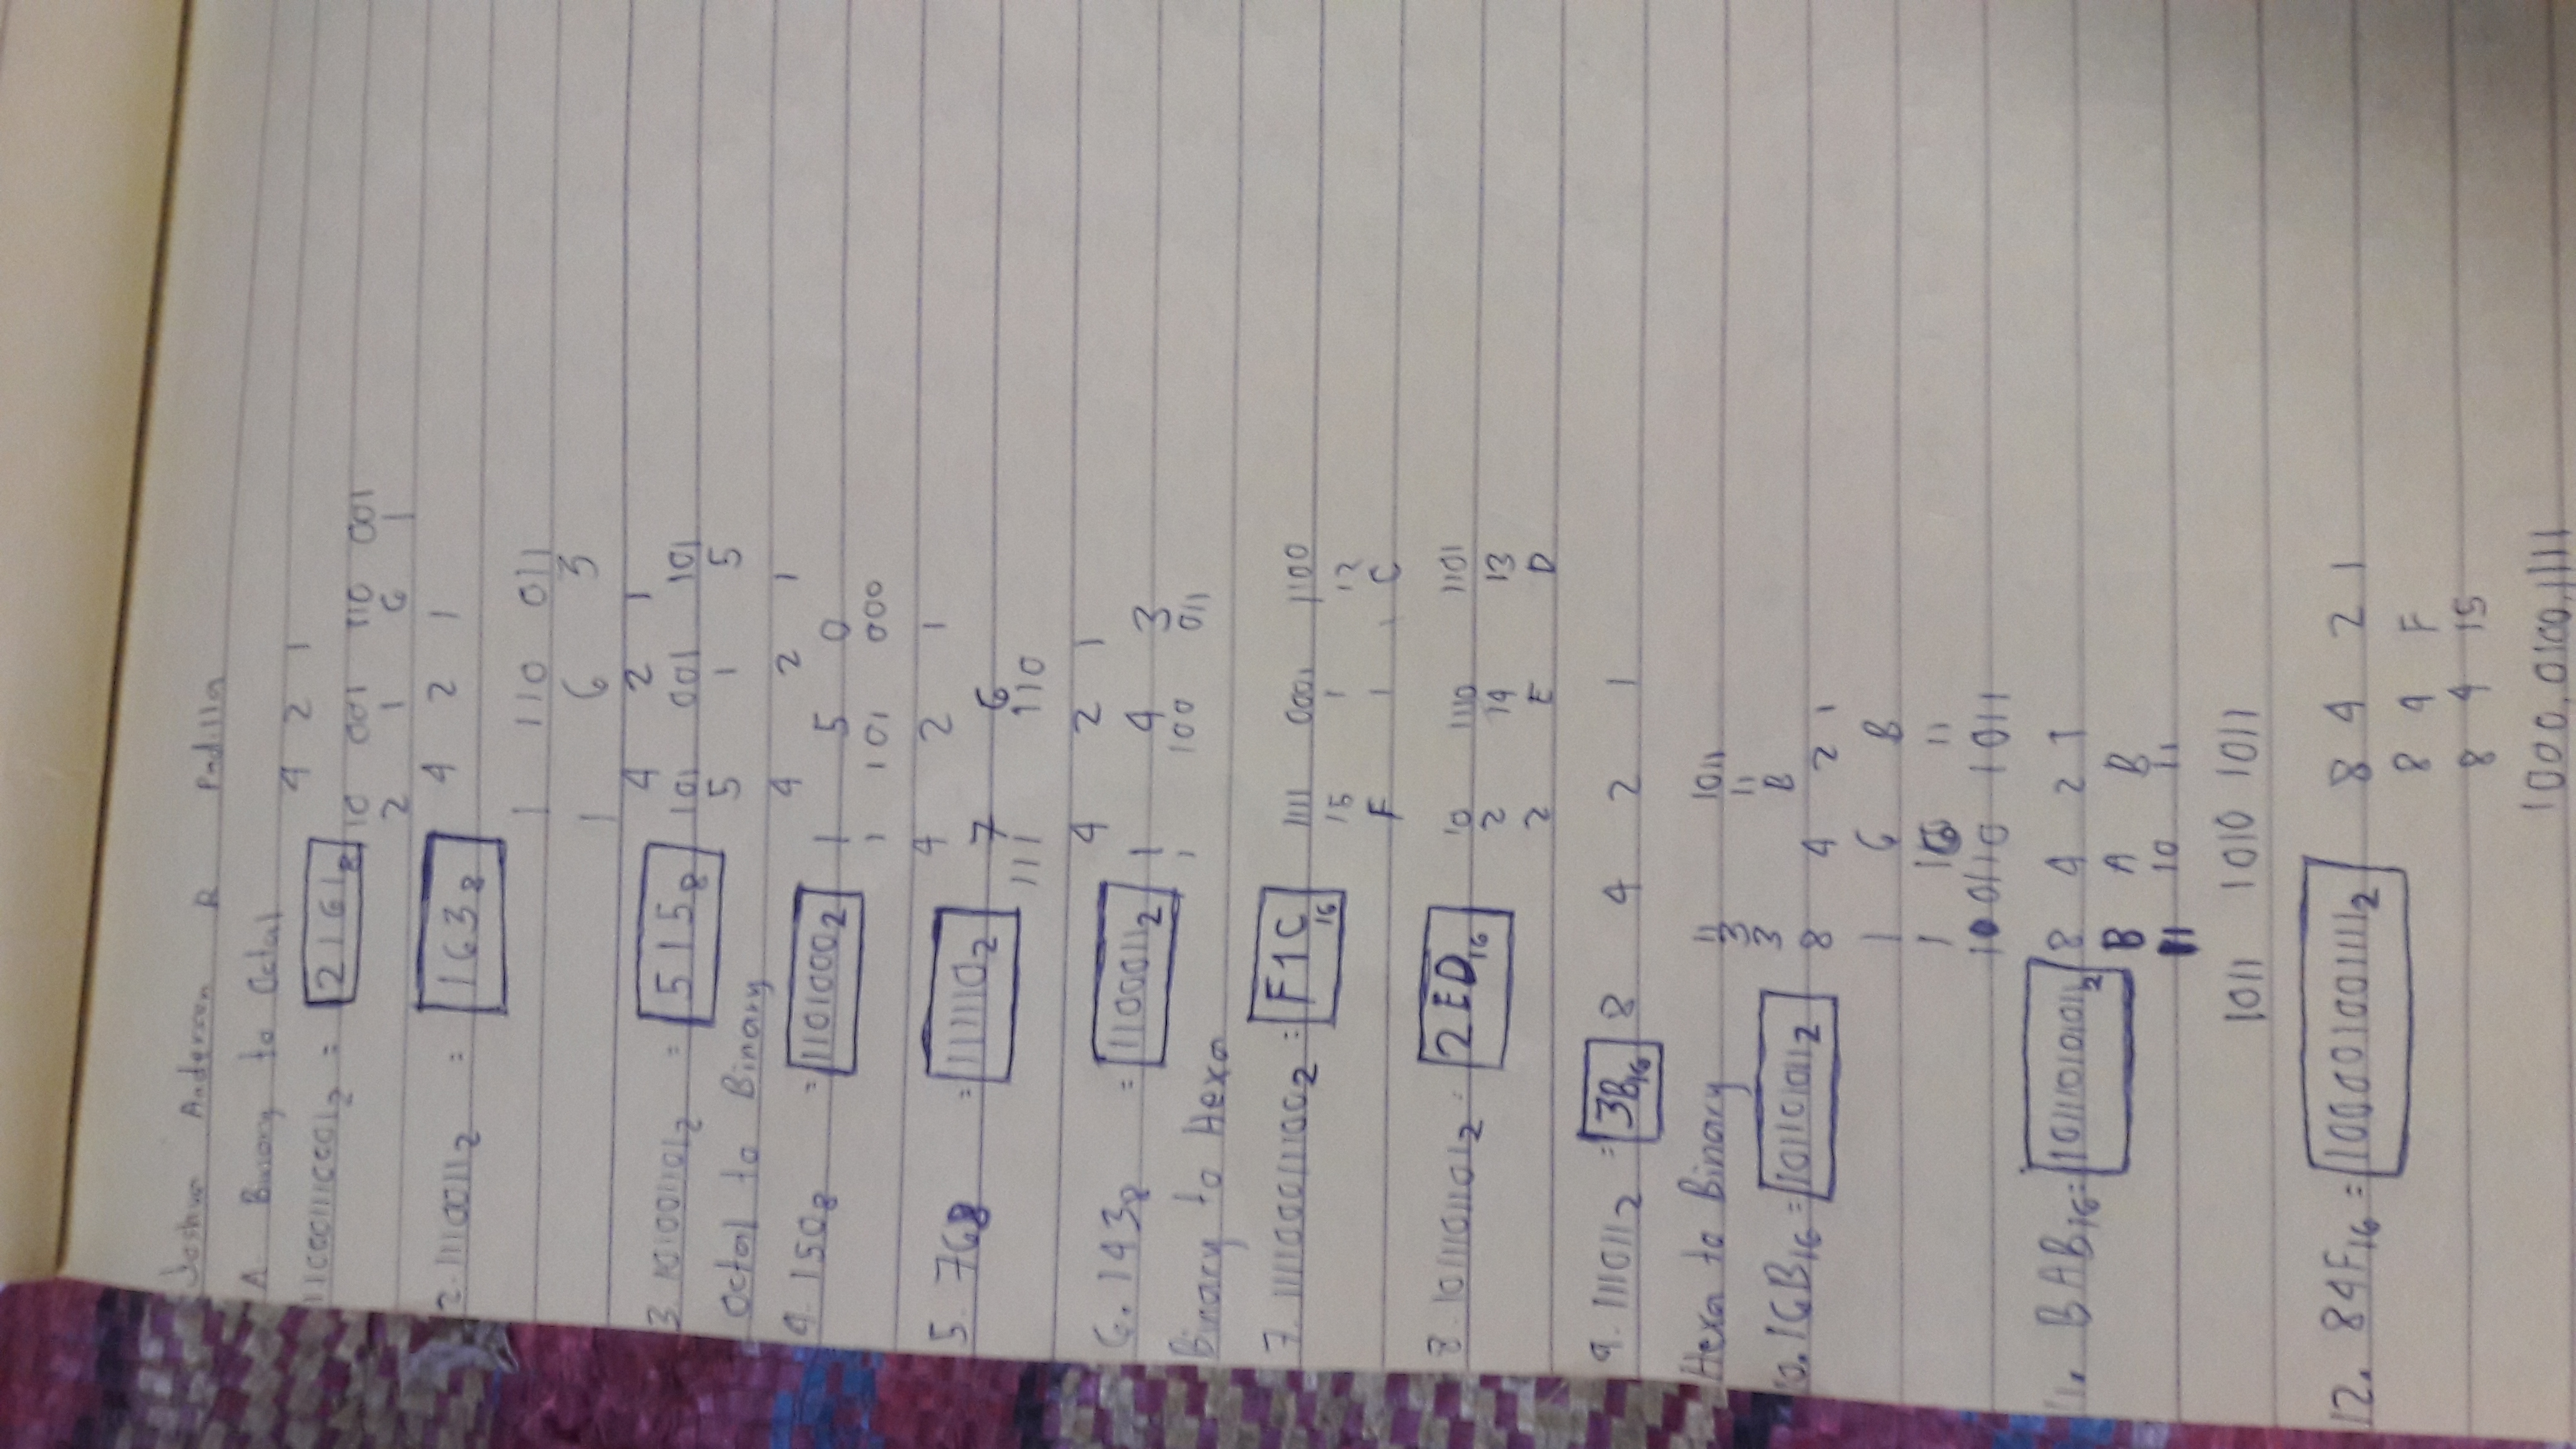 Joshua Anderson R Padilla
A. Binary to Octal
4 2 1
= 2161₈ 10 001 110 001
2 1 6 1
2. 1110011₂ = 163₈ 4 2 1
1 110 011
1 6 3
4 2 1
3. 101001101₂ = 515₈ 101 001 101
5 1 5
Octal to Binary
4 2 1
4. 150₈ = 1101000₂ 1 5 0
1 101 000
4 2 1
5. 76₈ = 111110₂ 7 6
111 110
4 2 1
6. 143₈ = 1100011₂ 1 4 3
1 100 011
Binary to Hexa
7. = F1C₁₆ 1111 0001 1100
15 1 12
F 1 C
8. 1011101101₂ 2ED₁₆ 10 1110 1101
2 14 13
2 E D
9. 111011₂ = 3B₁₆ 8 4 2 1
Hexa to Binary 11 1011
3 11
3 B
10. 16B₁₆ = 101101011₂ 8 4 2 1
1 6 B
1 16 11
10 0110 1011
11. BAB₁₆ = 101110101011₂ 8 4 2 1
B A B
11 10 11
1011 1010 1011
12. 84F₁₆ = 100001001111₂ 8 4 2 1
8 4 F
8 4 15
1000,0100,1111